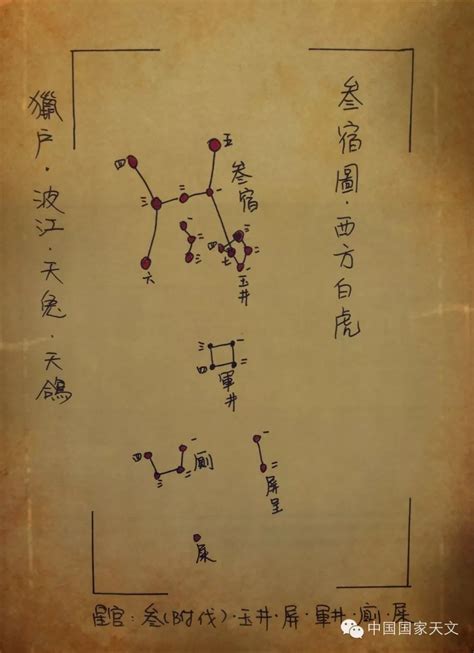 叁宿圖·西方白虎
獵户·波江·天兔·天鴿
五
四
一
二
三
叁宿
一
二
三
六
三
四
二
七
一
玉井
三
一
四
二
軍井
四
一
厠
三
二
一
二
屏呈
屎
星官:叁(B时代)·玉井·屏·軍井·厠·屎
中国国家天文